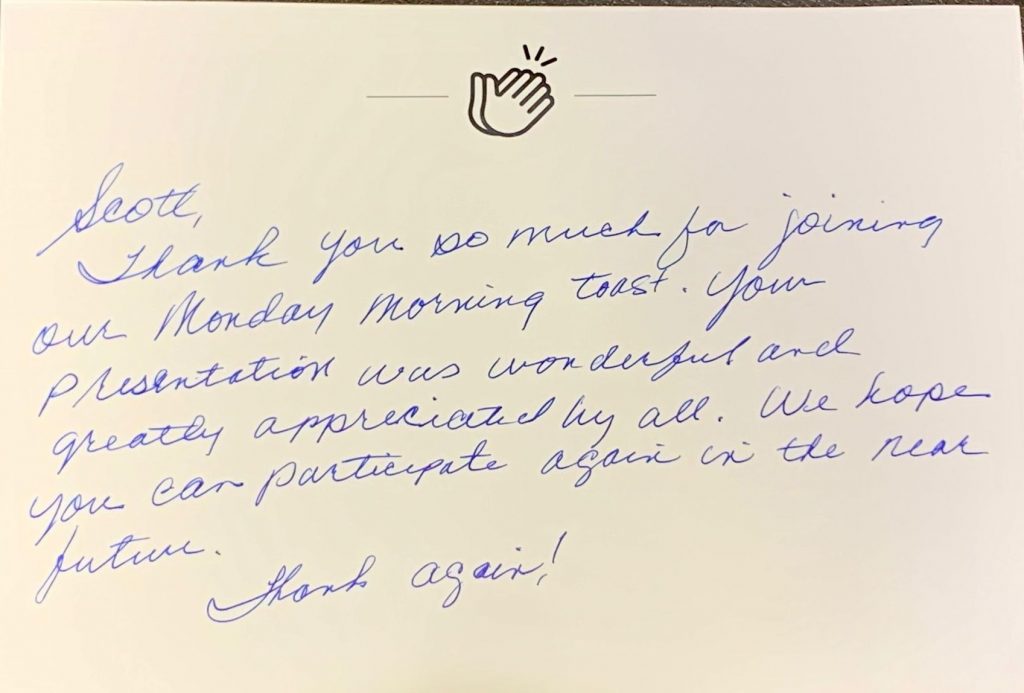 Scott,
Thank you so much for joining
our Monday morning toast. Your
presentation was wonderful and
greatly appreciated by all. We hope
you can participate again in the near
future.
Thank again!